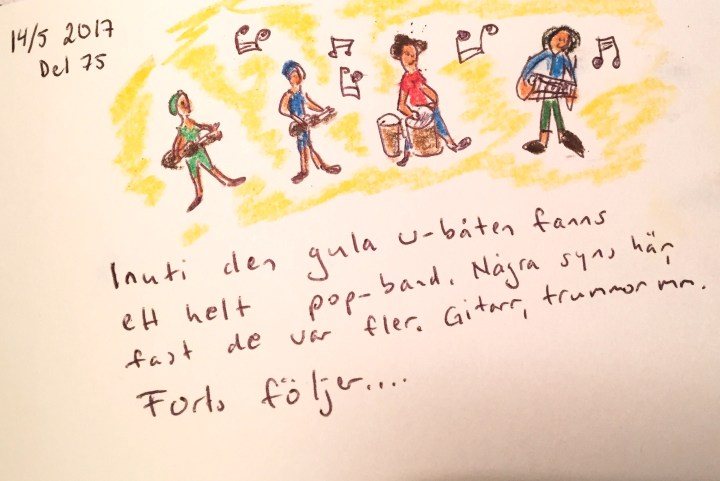 14/5 2017
Del 75
Inuti den gula u-båten fanns
ett helt pop-band. Några syns här,
fast de var fler. Gitarr, trummor mm.
Forts följer....